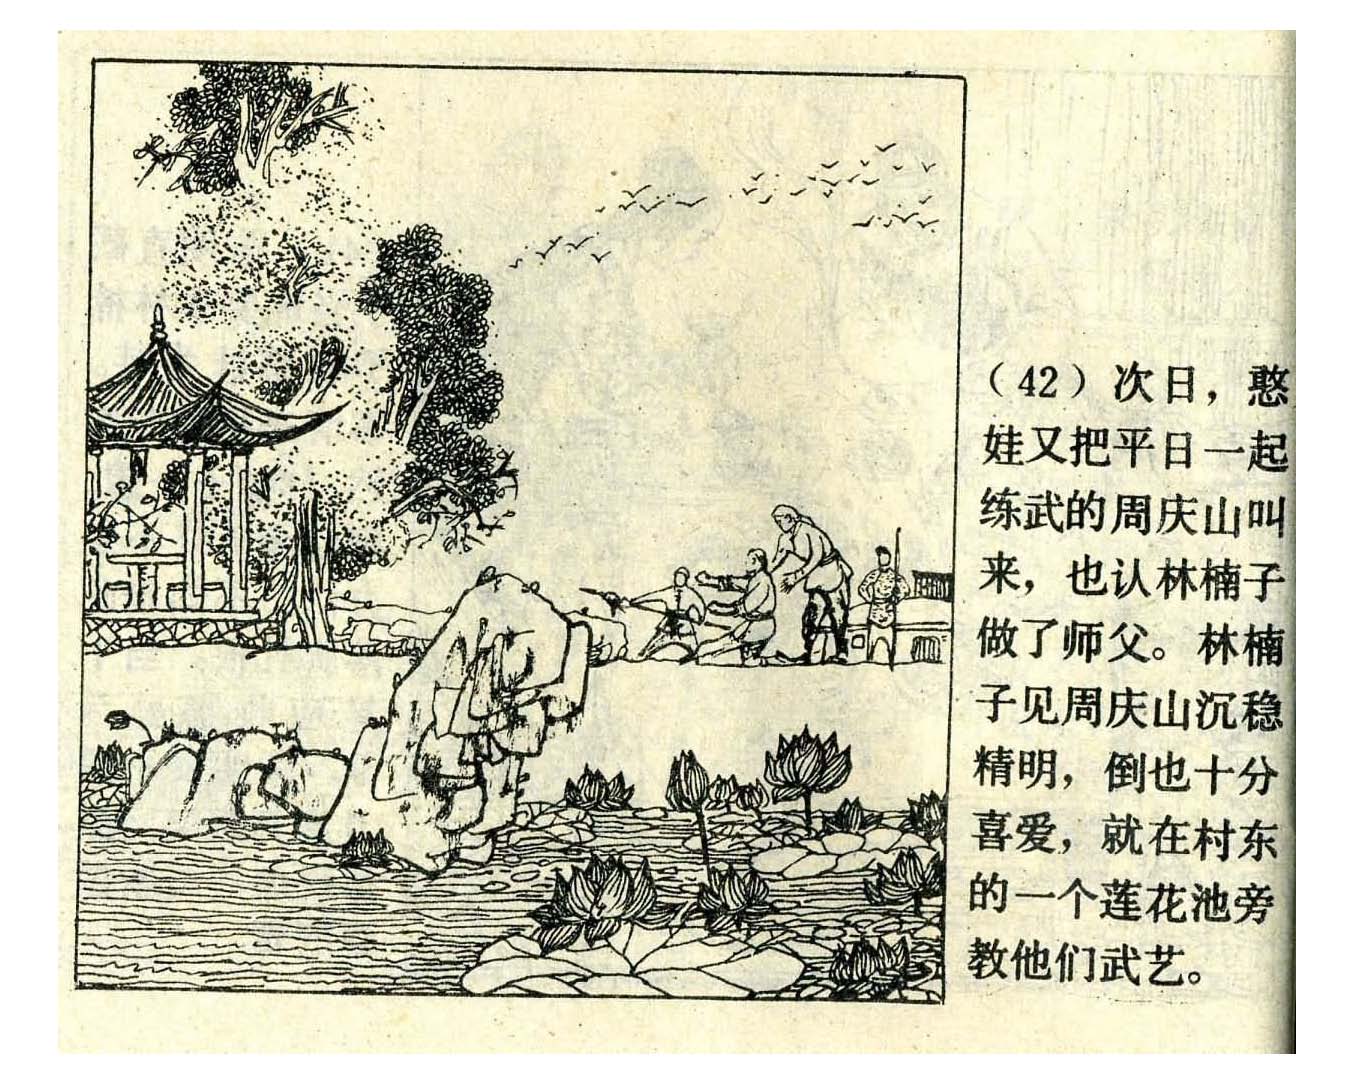 （42）次日，憨
娃又把平日一起
练武的周庆山叫
来，也认林楠子
做了师父。林楠
子见周庆山沉稳
精明，倒也十分
喜爱，就在村东
的一个莲花池旁
教他们武艺。